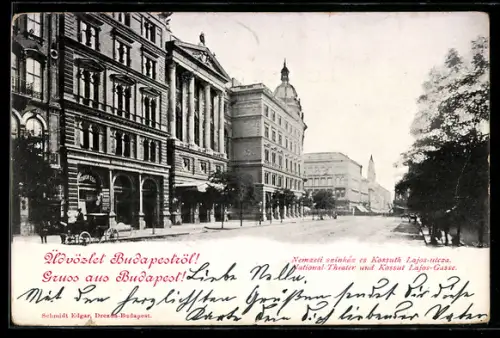 Üdvözlet Budapestről!
Gruss aus Budapest!
Nemzeti szinház es Kossuth Lajos-utcza.
National-Theater und Kossut Lajos-Gasse.
Liebe Nella,
Mit den herzlichsten Grüßen sendet dir diese
Karte dein dich liebender Vater
Schmidt Edgar, Drezda-Budapest.